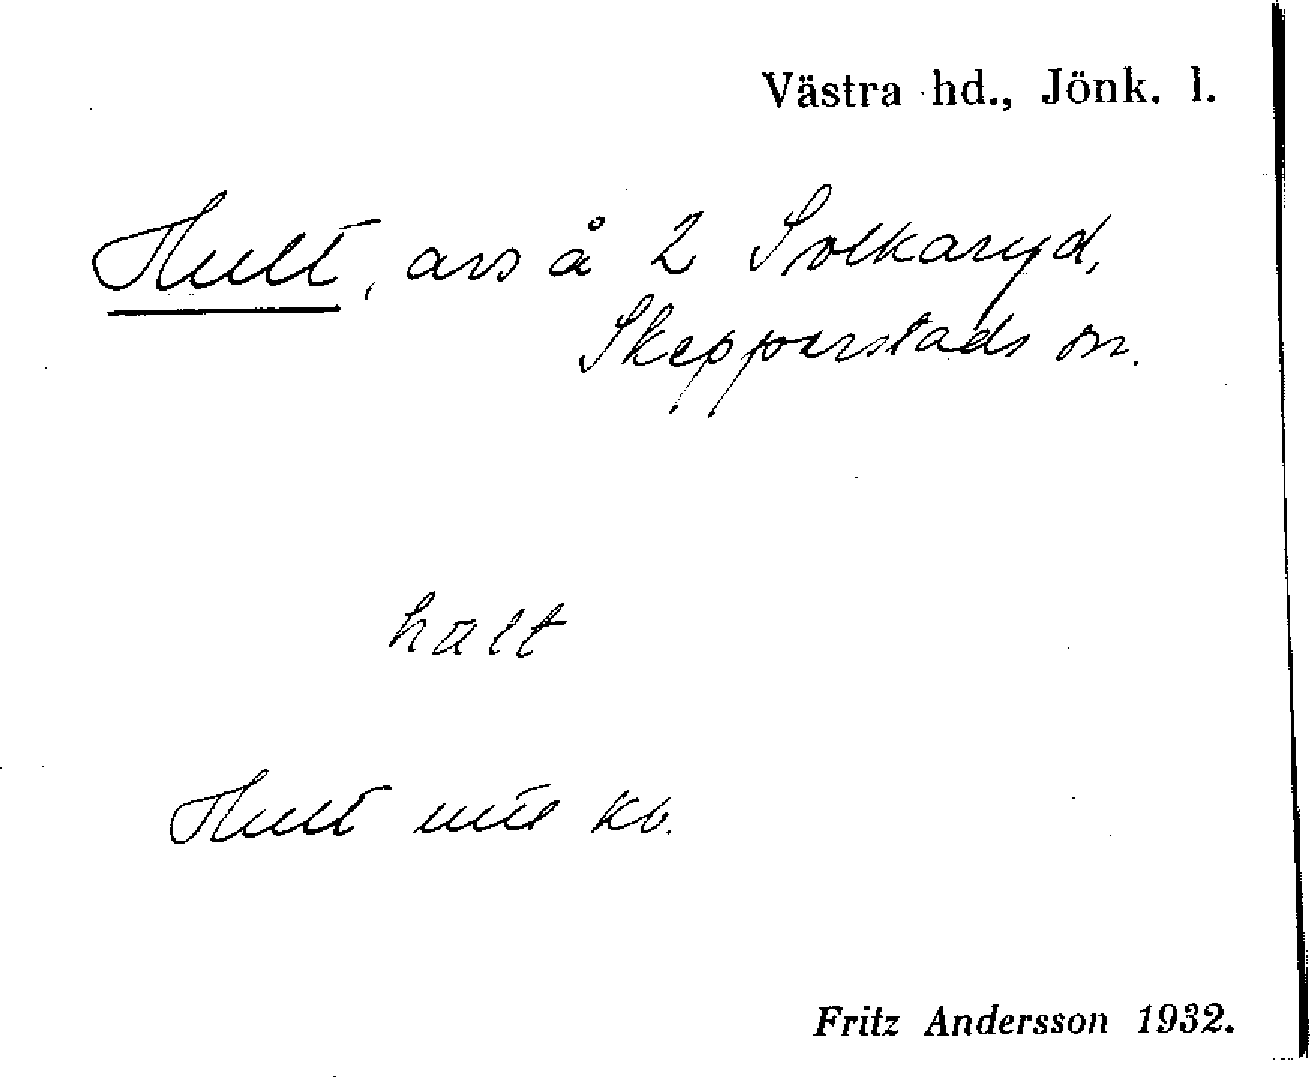 Västra hd., Jönk. l.
Hult, avs å 2 Solkaryd,
Skepperstads sn.
hult
Hult utе kb.
Fritz Andersson 1932.